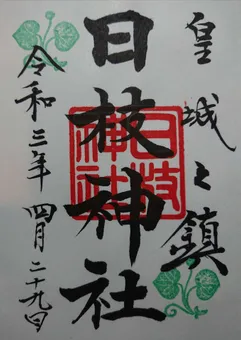 皇城之鎮
日枝神社
日枝神社
令和三年 四月二十九日